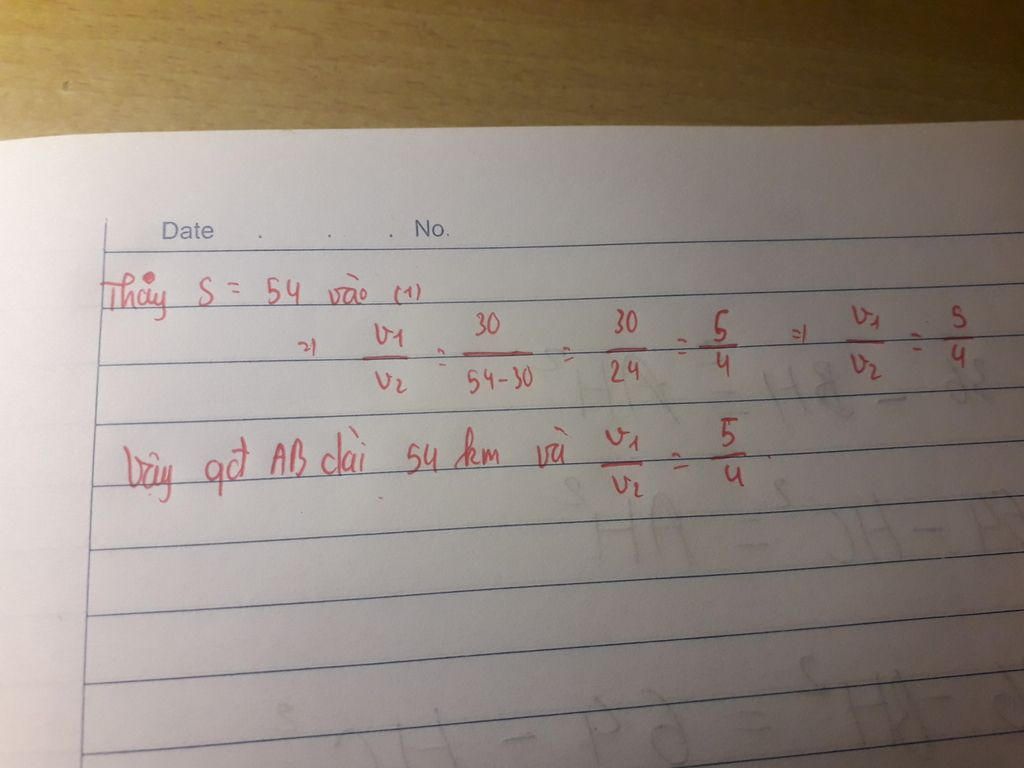 Date . . . No.
Thay S = 54 vào (1)
=> v1/v2 = 30/(54-30) = 30/24 = 5/4 => v1/v2 = 5/4
Vậy qđ AB dài 54 km và v1/v2 = 5/4.